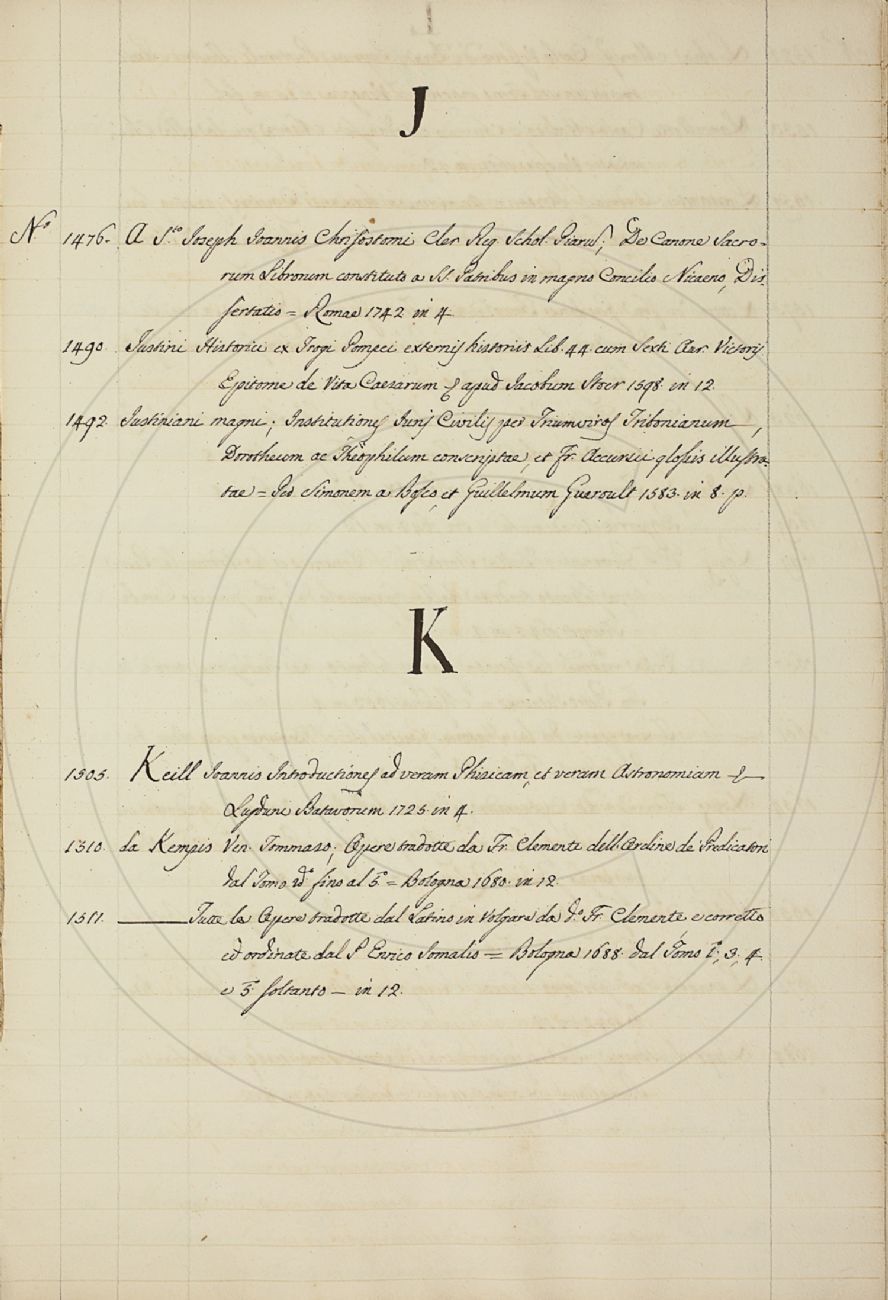 J
N.º 1476. A S.to Joseph Joannis Chrisostomi Cler Reg. Schol. Piarum; De Canone Sacro-
rum Librorum constituto a SS. Patribus in magno Concilio Nicaeno, Dis
sertatio = Romae 1742 in 4
1490. Justini Historici ex Trogi Pompei externis historiis Lib. 44. cum Sexti Aur. Victoris
Epitome de Vita Caesarum & apud Jacobum Stoer 1598 in 12.
1492. Justiniani magni; Institutiones Juris Civilis per Triumviros Tribonianum,
Dorotheum ac Theophilum conscriptae, et Fr. Accursii glossis illustra-
tae = Simonem a Bosco, et Guillelmum Gueroult 1583. in 8. p.
K
1505. Keill Joannis Introductiones ad veram Phisicam, et veram Astronomiam &
Lugduni Batavorum 1725. in 4.
1510. da Kempis Ven. Tommaso; Opere tradotte da Fr. Clemente dell'Ordine de' Predicatori
dal Tomo 2º fino al 5º = Bologna 1680. in 12.
1511. ——— Tutte le Opere tradotte dal Latino in Volgare da d.º Fr. Clemente, e corrette
ed ordinate dal P Enrico Somalio = Bologna 1688. dal Tomo 1º, 3, 4
e 5. soltanto — in 12.